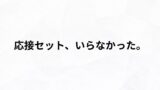 応接セット、いらなかった。